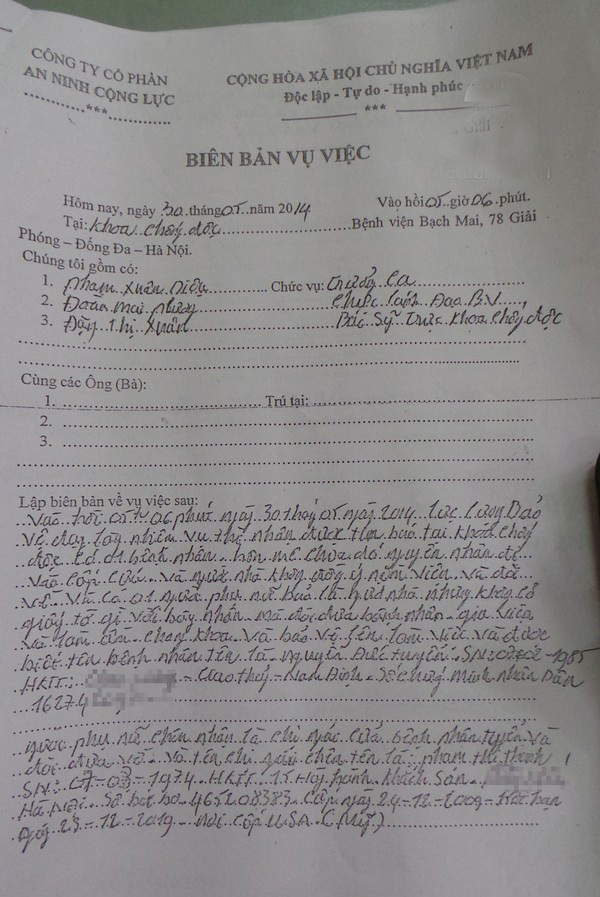 CÔNG TY CỔ PHẦN
AN NINH CỘNG LỰC
............***............
CỘNG HÒA XÃ HỘI CHỦ NGHĨA VIỆT NAM
Độc lập - Tự do - Hạnh phúc
***
BIÊN BẢN VỤ VIỆC
Hôm nay, ngày 30 tháng 05 năm 2014 Vào hồi 05 giờ 06 phút.
Tại: Khoa chống độc Bệnh viện Bạch Mai, 78 Giải
Phóng – Đống Đa – Hà Nội.
Chúng tôi gồm có:
1. Phạm Xuân Diệu Chức vụ: trưởng Ca
2. Đoàn Mai Phương
3. Đặng Thị Xuân Bác Sỹ trực Khoa chống độc
Cùng các Ông (Bà):
1. Trú tại:
2.
3.
Lập biên bản về vụ việc sau:
Vào hồi 05 h 06 phút ngày 30 tháng 05 năm 2014 lực lượng bảo
vệ đang làm nhiệm vụ thì nhận được tin báo tại khoa chống
độc có 01 bệnh nhân hôn mê chưa rõ nguyên nhân
vào cấp cứu và người nhà không đồng ý nằm viện và đòi
về và có 01 người phụ nữ bảo là người nhà nhưng không có
giấy tờ gì với bệnh nhân mà đòi đưa bệnh nhân ra viện
và làm ầm khoa và bảo vệ lên làm việc và được
biết tên bệnh nhân tên là Nguyễn Đức Tuyển SN: 1985
HKTT: Giao Thủy - Nam Định - số chứng minh nhân dân
16274
người phụ nữ nhận là chị gái của bệnh nhân Tuyển và
đòi đưa về và tên chị tên là: Phạm Thị Thanh
SN: 07-03-1974 HKTT: 15
Hà Nội. Số hộ 465208383 Cấp ngày 24-12-2009 hết hạn
23-12-2019 nơi cấp U.S.A (Mỹ)